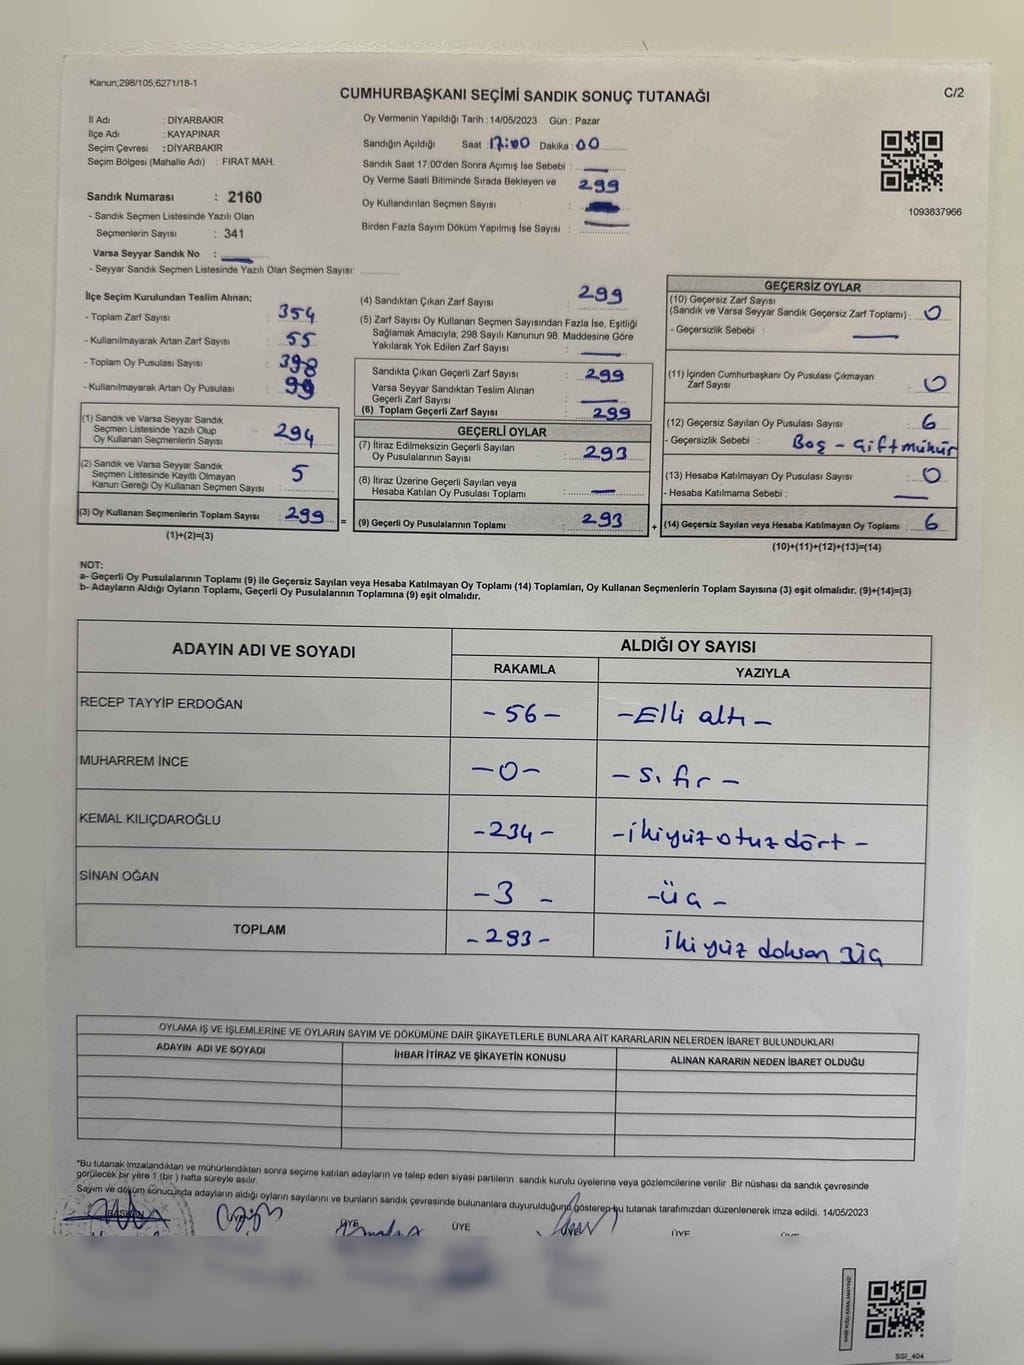 Kanun;298/105;6271/18-1
C/2
CUMHURBAŞKANI SEÇİMİ SANDIK SONUÇ TUTANAĞI
İl Adı : DİYARBAKIR
İlçe Adı : KAYAPINAR
Seçim Çevresi : DİYARBAKIR
Seçim Bölgesi (Mahalle Adı) : FIRAT MAH.
Sandık Numarası : 2160
- Sandık Seçmen Listesinde Yazılı Olan
Seçmenlerin Sayısı : 341
Varsa Seyyar Sandık No :
- Seyyar Sandık Seçmen Listesinde Yazılı Olan Seçmen Sayısı:
Oy Vermenin Yapıldığı Tarih : 14/05/2023 Gün : Pazar
Sandığın Açıldığı Saat : 17:00 Dakika : 00
Sandık Saat 17.00'den Sonra Açımış İse Sebebi : —
Oy Verme Saati Bitiminde Sırada Bekleyen ve 299
Oy Kullandırılan Seçmen Sayısı :
Birden Fazla Sayım Döküm Yapılmış İse Sayısı : —
1093837966
İlçe Seçim Kurulundan Teslim Alınan;
- Toplam Zarf Sayısı : 354
- Kullanılmayarak Artan Zarf Sayısı : 55
- Toplam Oy Pusulası Sayısı : 398
- Kullanılmayarak Artan Oy Pusulası : 99
(1) Sandık ve Varsa Seyyar Sandık
Seçmen Listesinde Yazılı Olup
Oy Kullanan Seçmenlerin Sayısı : 294
(2) Sandık ve Varsa Seyyar Sandık
Seçmen Listesinde Kayıtlı Olmayan
Kanun Gereği Oy Kullanan Seçmen Sayısı : 5
(3) Oy Kullanan Seçmenlerin Toplam Sayısı : 299 =
(1)+(2)=(3)
(4) Sandıktan Çıkan Zarf Sayısı : 299
(5) Zarf Sayısı Oy Kullanan Seçmen Sayısından Fazla İse, Eşitliği
Sağlamak Amacıyla; 298 Sayılı Kanunun 98. Maddesine Göre
Yakılarak Yok Edilen Zarf Sayısı : —
Sandıkta Çıkan Geçerli Zarf Sayısı : 299
Varsa Seyyar Sandıktan Teslim Alınan
Geçerli Zarf Sayısı : —
(6) Toplam Geçerli Zarf Sayısı : 299
GEÇERLİ OYLAR
(7) İtiraz Edilmeksizin Geçerli Sayılan
Oy Pusulalarının Sayısı : 293
(8) İtiraz Üzerine Geçerli Sayılan veya
Hesaba Katılan Oy Pusulası Toplamı : —
(9) Geçerli Oy Pusulalarının Toplamı : 293 +
GEÇERSİZ OYLAR
(10) Geçersiz Zarf Sayısı
(Sandık ve Varsa Seyyar Sandık Geçersiz Zarf Toplamı) : 0
- Geçersizlik Sebebi : —
(11) İçinden Cumhurbaşkanı Oy Pusulası Çıkmayan
Zarf Sayısı : 0
(12) Geçersiz Sayılan Oy Pusulası Sayısı : 6
- Geçersizlik Sebebi : Boş - Çift mühür
(13) Hesaba Katılmayan Oy Pusulası Sayısı : 0
- Hesaba Katılmama Sebebi : —
(14) Geçersiz Sayılan veya Hesaba Katılmayan Oy Toplamı : 6
(10)+(11)+(12)+(13)=(14)
NOT:
a- Geçerli Oy Pusulalarının Toplamı (9) ile Geçersiz Sayılan veya Hesaba Katılmayan Oy Toplamı (14) Toplamları, Oy Kullanan Seçmenlerin Toplam Sayısına (3) eşit olmalıdır. (9)+(14)=(3)
b- Adayların Aldığı Oyların Toplamı, Geçerli Oy Pusulalarının Toplamına (9) eşit olmalıdır.
ADAYIN ADI VE SOYADI
ALDIĞI OY SAYISI
RAKAMLA YAZIYLA
RECEP TAYYİP ERDOĞAN -56- -Elli altı-
MUHARREM İNCE -0- -Sıfır-
KEMAL KILIÇDAROĞLU -234- -ikiyüz otuz dört-
SİNAN OĞAN -3- -üç-
TOPLAM -293- ikiyüz doksan üç
OYLAMA İŞ VE İŞLEMLERİNE VE OYLARIN SAYIM VE DÖKÜMÜNE DAİR ŞİKAYETLERLE BUNLARA AİT KARARLARIN NELERDEN İBARET BULUNDUKLARI
ADAYIN ADI VE SOYADI İHBAR İTİRAZ VE ŞİKAYETİN KONUSU ALINAN KARARIN NEDEN İBARET OLDUĞU
*Bu tutanak imzalandıktan ve mühürlendikten sonra seçime katılan adayların ve talep eden siyasi partilerin sandık kurulu üyelerine veya gözlemcilerine verilir .Bir nüshası da sandık çevresinde
görülecek bir yere 1 (bir ) hafta süreyle asılır.
Sayım ve döküm sonucunda adayların aldığı oyların sayılarını ve bunların sandık çevresinde bulunanlara duyurulduğunu gösteren bu tutanak tarafımızdan düzenlenerek imza edildi. 14/05/2023
BAŞKAN ÜYE ÜYE ÜYE ÜYE ÜYE
SSI_404